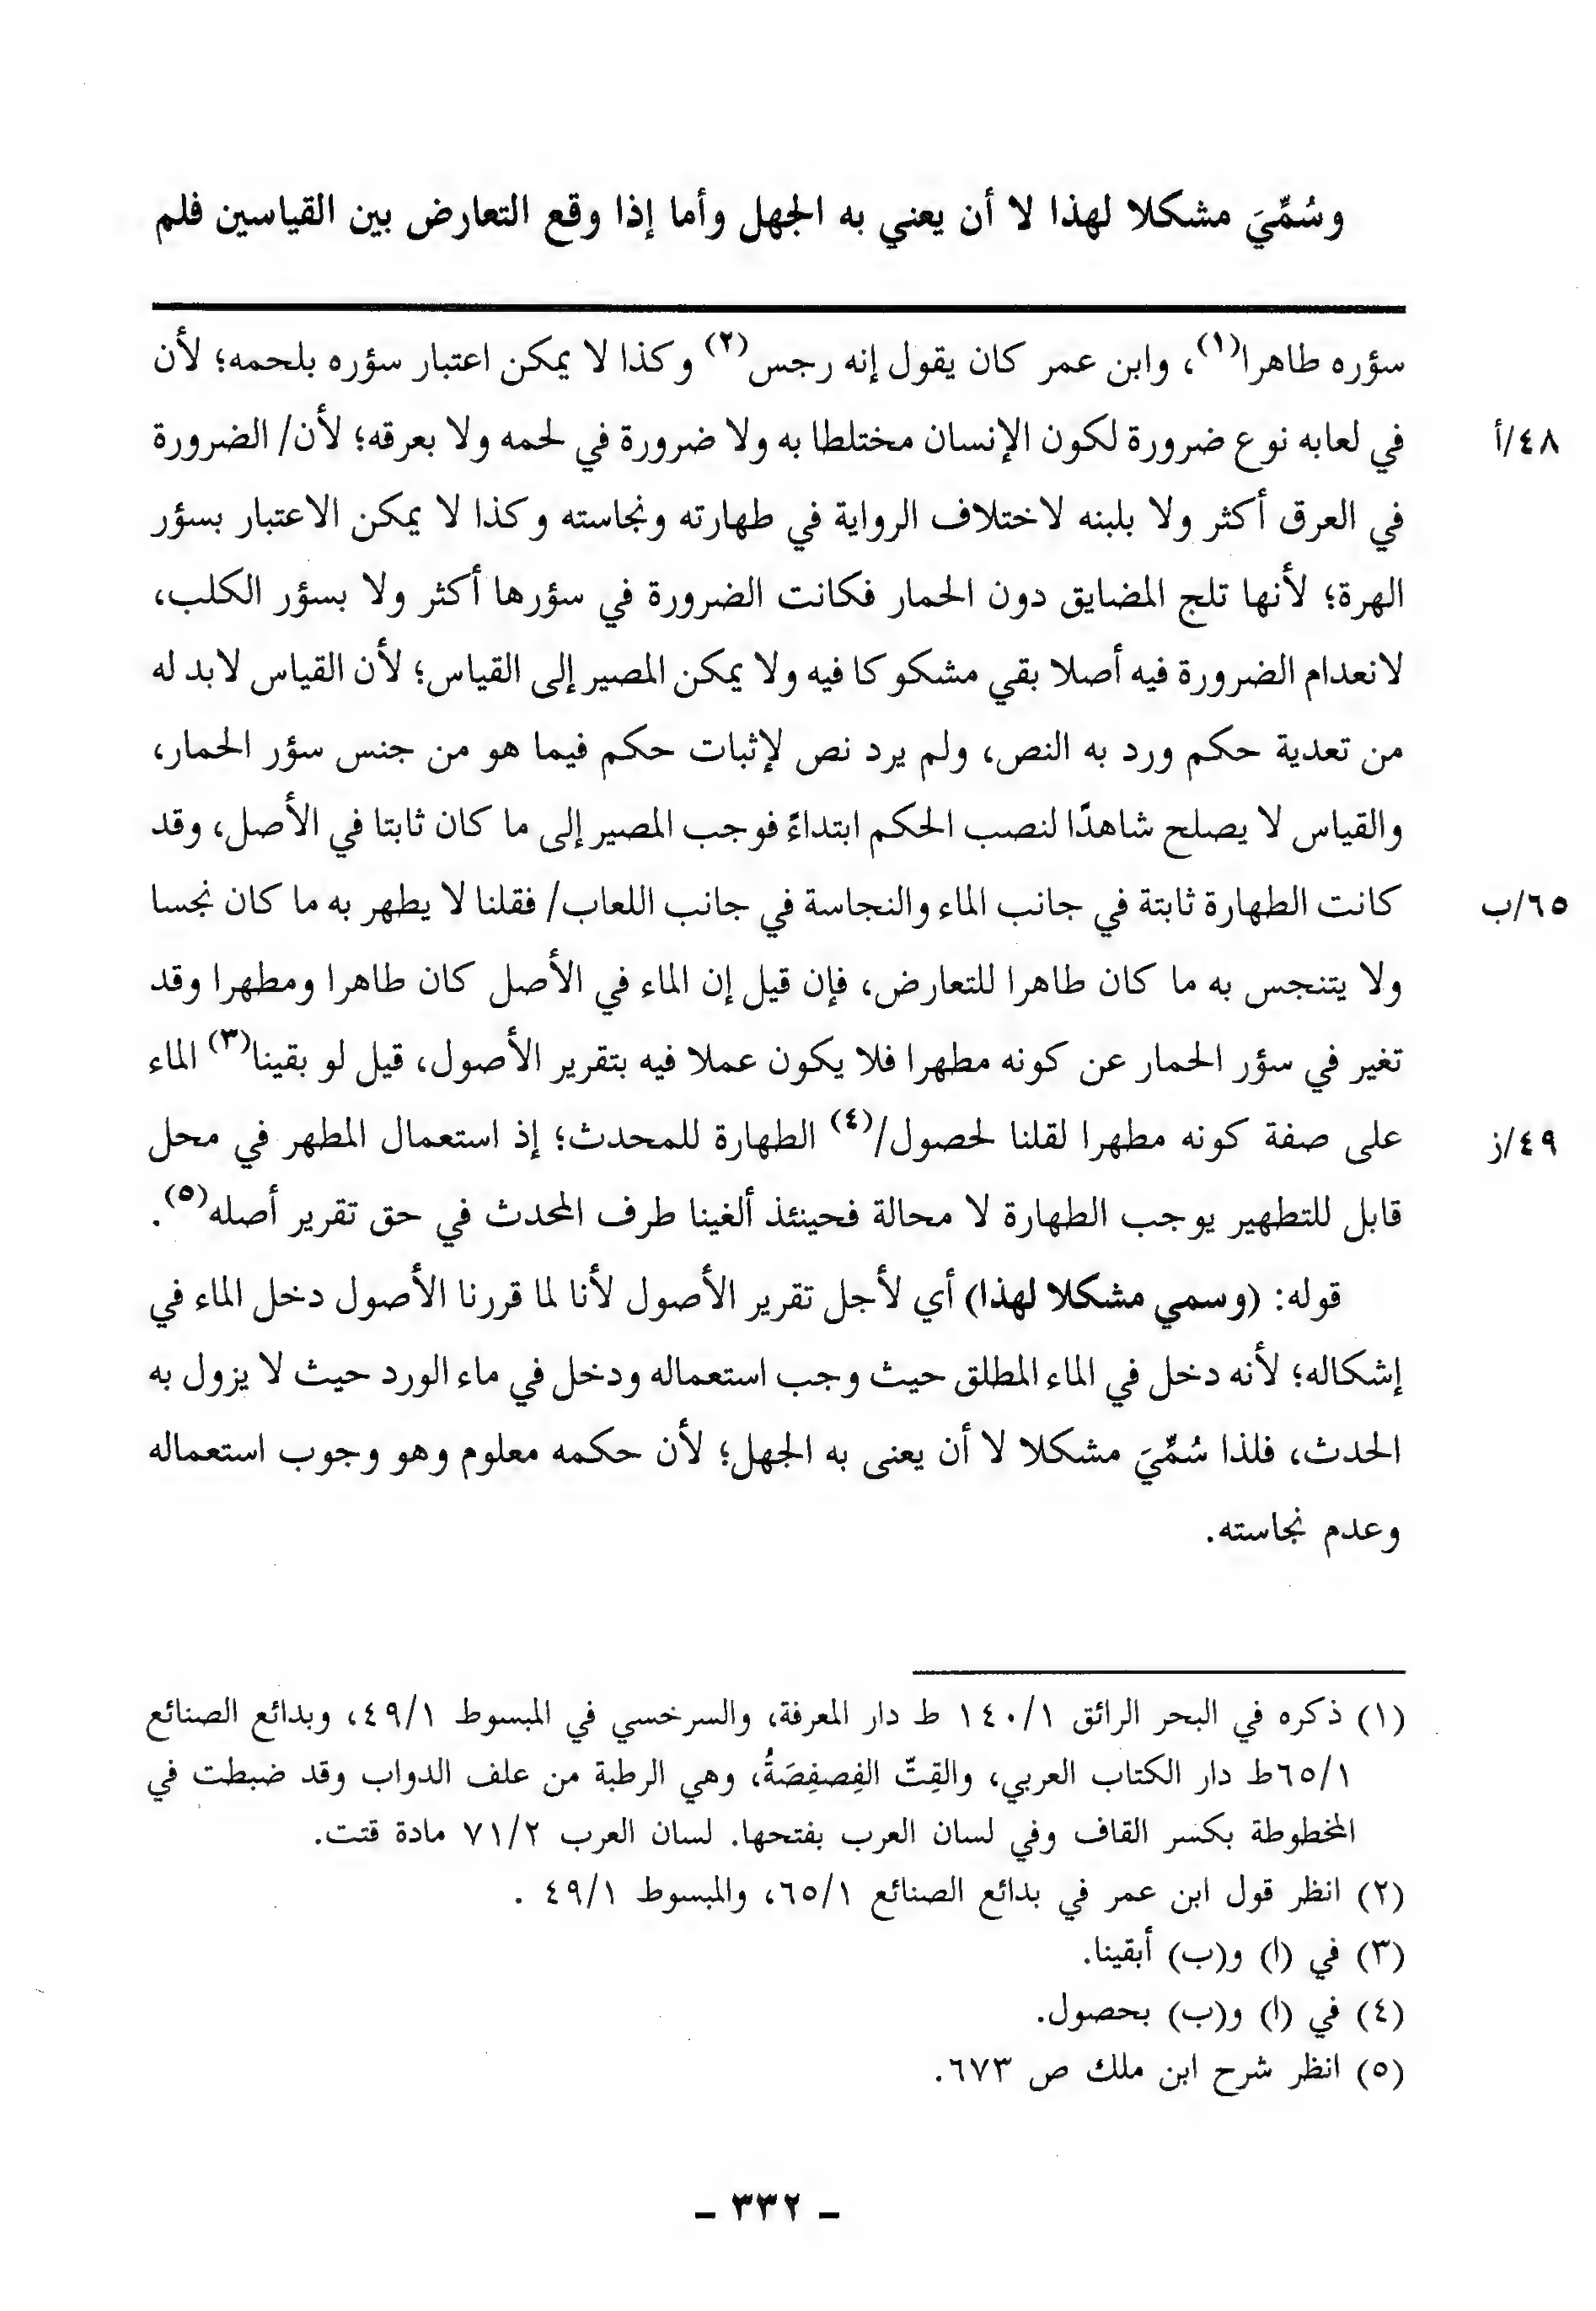 وسُمِّيَ مشكلا لهذا لا أن يعني به الجهل وأما إذا وقع التعارض بين القياسين فلم
سؤره طاهرا(١)، وابن عمر كان يقول إنه رجس(٢) وكذا لا يمكن اعتبار سؤره بلحمه؛ لأن
في لعابه نوع ضرورة لكون الإنسان مختلطا به ولا ضرورة في لحمه ولا بعرقه؛ لأن/ الضرورة
٤٨/أ
في العرق أكثر ولا بلبنه لاختلاف الرواية في طهارته ونجاسته وكذا لا يمكن الاعتبار بسؤر
الهرة؛ لأنها تلج المضايق دون الحمار فكانت الضرورة في سؤرها أكثر ولا بسؤر الكلب،
لانعدام الضرورة فيه أصلا بقي مشكوكا فيه ولا يمكن المصير إلى القياس؛ لأن القياس لابد له
من تعدية حكم ورد به النص، ولم يرد نص لإثبات حكم فيما هو من جنس سؤر الحمار،
والقياس لا يصلح شاهدًا لنصب الحكم ابتداءً فوجب المصير إلى ما كان ثابتا في الأصل، وقد
كانت الطهارة ثابتة في جانب الماء والنجاسة في جانب اللعاب/ فقلنا لا يطهر به ما كان نجسا
٦٥/ب
ولا يتنجس به ما كان طاهرا للتعارض، فإن قيل إن الماء في الأصل كان طاهرا ومطهرا وقد
تغير في سؤر الحمار عن كونه مطهرا فلا يكون عملا فيه بتقرير الأصول، قيل لو بقينا(٣) الماء
على صفة كونه مطهرا لقلنا لحصول/(٤) الطهارة للمحدث؛ إذ استعمال المطهر في محل
٤٩/ز
قابل للتطهير يوجب الطهارة لا محالة فحينئذ ألغينا طرف المحدث في حق تقرير أصله(٥).
قوله: (وسمي مشكلا لهذا) أي لأجل تقرير الأصول لأنا لما قررنا الأصول دخل الماء في
إشكاله؛ لأنه دخل في الماء المطلق حيث وجب استعماله ودخل في ماء الورد حيث لا يزول به
الحدث، فلذا سُمِّيَ مشكلا لا أن يعنى به الجهل؛ لأن حكمه معلوم وهو وجوب استعماله
وعدم نجاسته.
(١) ذكره في البحر الرائق ١٤٠/١ ط دار المعرفة، والسرخسي في المبسوط ٤٩/١، وبدائع الصنائع
٦٥/١ط دار الكتاب العربي، والقِتّ الفِصفِصَةُ، وهي الرطبة من علف الدواب وقد ضبطت في
المخطوطة بكسر القاف وفي لسان العرب بفتحها. لسان العرب ٧١/٢ مادة قتت.
(٢) انظر قول ابن عمر في بدائع الصنائع ٦٥/١، والمبسوط ٤٩/١ .
(٣) في (ا) و(ب) أبقينا.
(٤) في (ا) و(ب) بحصول.
(٥) انظر شرح ابن ملك ص ٦٧٣.
- ٣٣٢ -